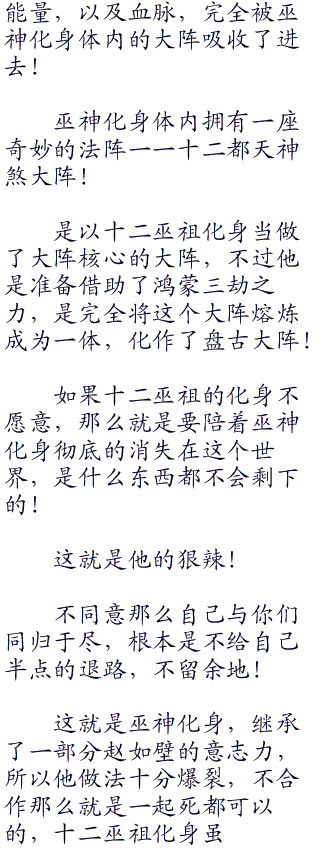 能量，以及血脉，完全被巫
神化身体内的大阵吸收了进
去！
巫神化身体内拥有一座
奇妙的法阵一一十二都天神
煞大阵！
是以十二巫祖化身当做
了大阵核心的大阵，不过他
是准备借助了鸿蒙三劫之
力，是完全将这个大阵熔炼
成为一体，化作了盘古大阵！
如果十二巫祖的化身不
愿意，那么就是要陪着巫神
化身彻底的消失在这个世
界，是什么东西都不会剩下
的！
这就是他的狠辣！
不同意那么自己与你们
同归于尽，根本是不给自己
半点的退路，不留余地！
这就是巫神化身，继承
了一部分赵如壁的意志力，
所以他做法十分爆裂，不合
作那么就是一起死都可以
的，十二巫祖化身虽